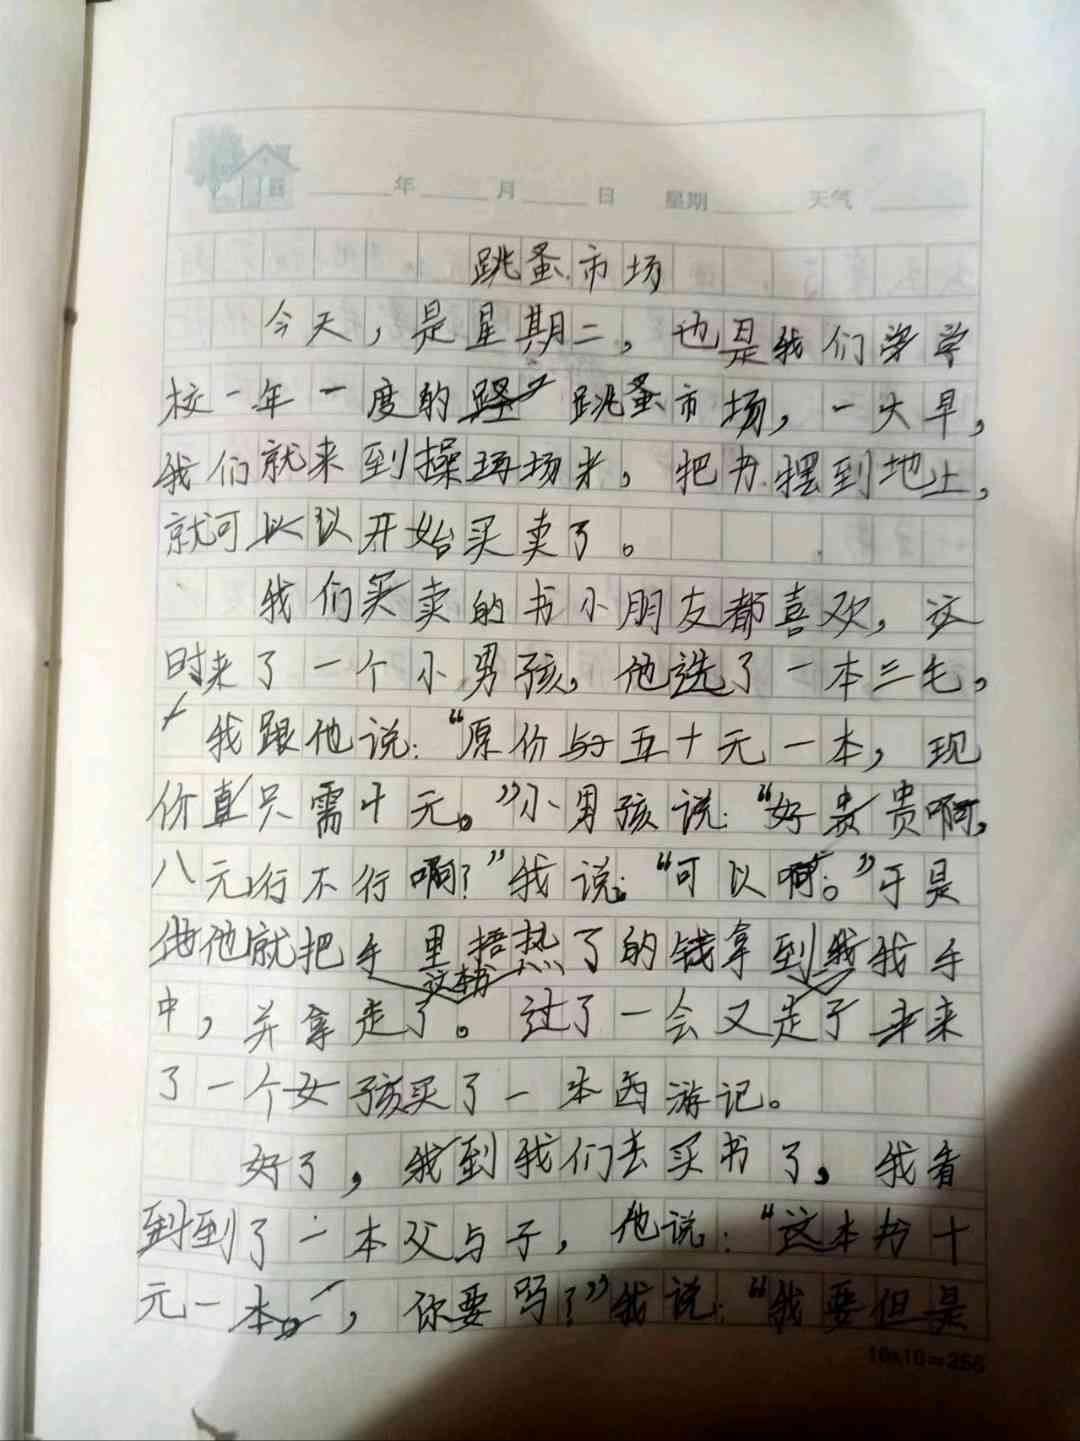 年 月 日 星期 天气
跳蚤市场
今天，是星期二，也是我们学学
校一年一度的 跳蚤市场，一大早，
我们就来到操场场来，把书摆到地上，
就可以以开始买卖了。
我们买卖的书小朋友都喜欢，这
时来了一个小男孩，他选了一本三毛，
我跟他说：“原价与五十元一本，现
价直只需十元。”小男孩说：“好贵贵啊，
八元行不行啊？”我说：“可以啊。”于是
他他就把手里捂热了的钱拿到我我手
这本书
中，并拿走了。过了一会又走于来来
了一个女孩买了一本西游记。
好了，我到我们去买书了，我看
到到了一本父与子，他说：“这本书十
元一本。，你要吗？”我说：“我要但是
16x16=256